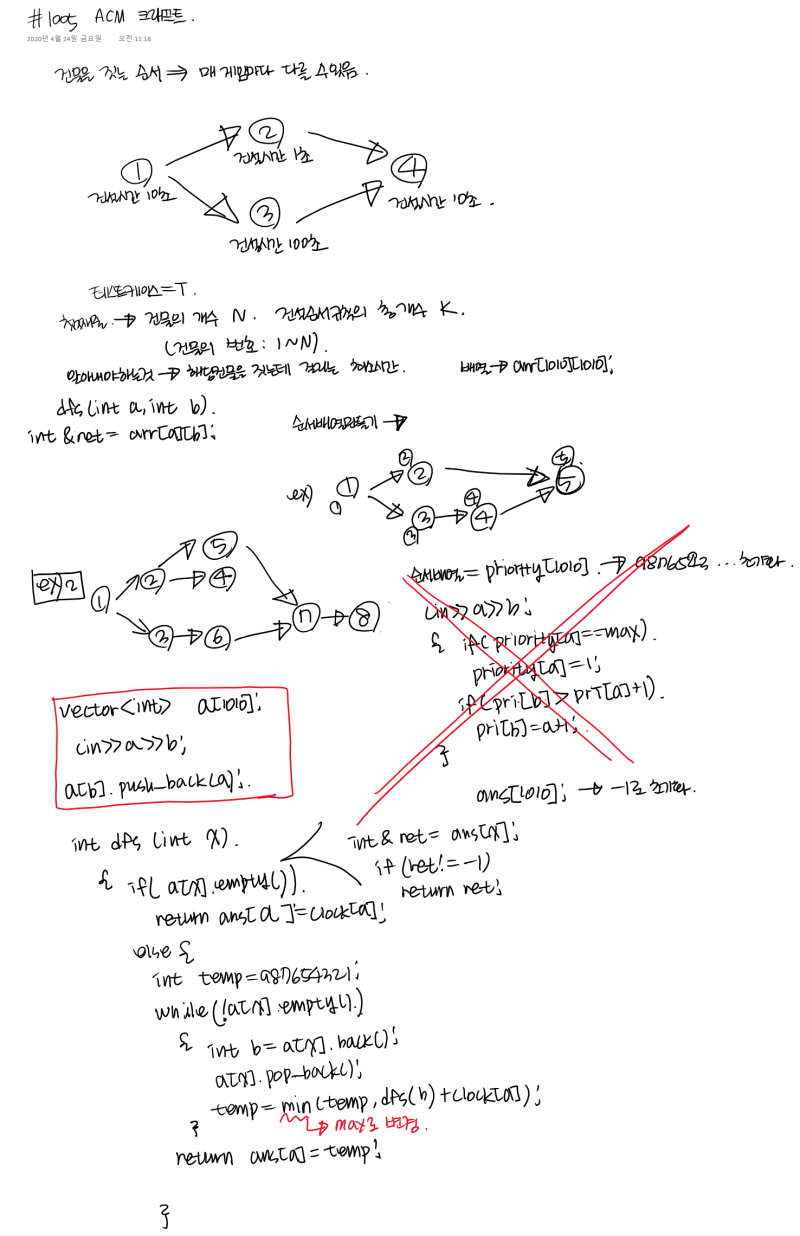 #1005 ACM 크래프트.
2020년 4월 24일 금요일 오전 11:16
건물을 짓는 순서 ⇒ 매 게임마다 다를 수 있음.
②
건설시간 1초
①
건설시간 10초
④
건설시간 10초.
③
건설시간 100초
테스트케이스=T.
첫째줄 → 건물의 개수 N. 건설순서규칙의 총개수 K.
(건물의 번호: 1~N).
알아내야하는것 → 해당건물을 짓는데 걸리는 최소시간. 배열→ arr[1010][1010];
dfs(int a, int b).
int &ret = arr[a][b];
순서배열만들기 →
ex) ① ② ③ ④ 5
① ② ③ ④ ⑤
ex)2 ① ② ③ ④ ⑤ ⑥ ⑦ → ⑧
순서배열 = priority[1010]. → 987654321 ... 초기화.
cin>>a>>b;
{ if( priority[a]==max).
priority[a]=1;
if(pri[b] > pri[a]+1).
pri[b]=a+1;
}
vector<int> a[1010];
cin>>a>>b;
a[b].push_back(a);
ans[1010]; → -1로 초기화.
int dfs (int x).
int& ret = ans[x];
if (ret!=-1)
return ret;
{ if( a[x].empty()).
return ans[a]=clock[a];
else {
int temp=987654321;
while(!a[x].empty())
{ int b=a[x].back();
a[x].pop_back();
temp= min(temp, dfs(b)+clock[a]);
}
→ max로 변경.
return ans[a]=temp;
}